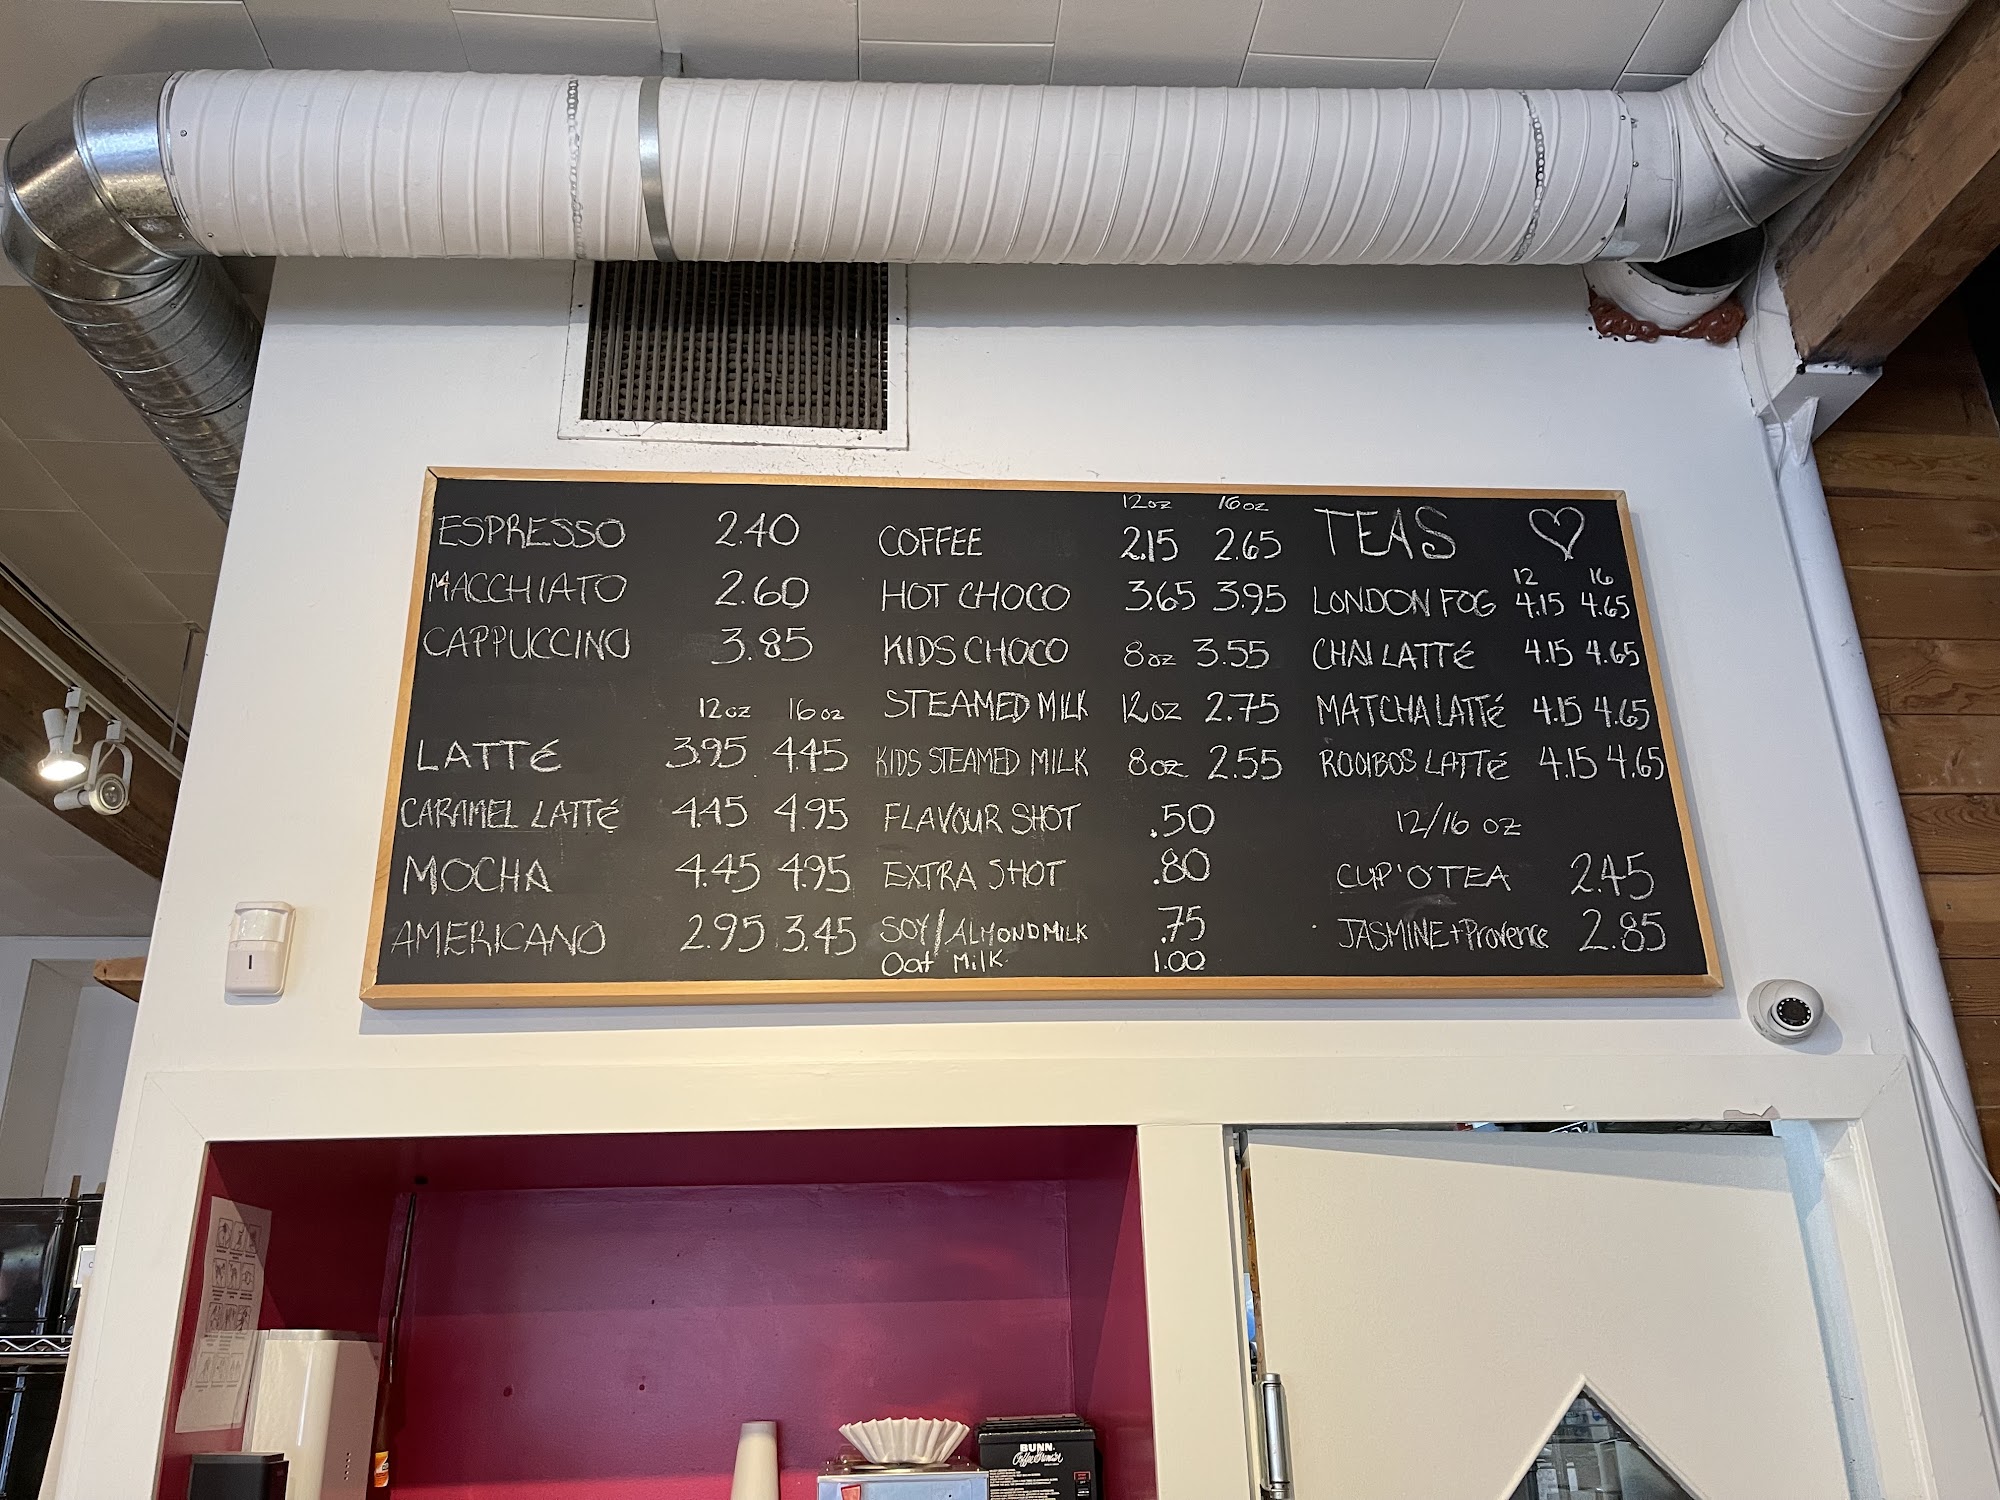 ESPRESSO 2.40
MACCHIATO 2.60
CAPPUCCINO 3.85
12oz 16oz
LATTé 3.95 4.45
CARAMEL LATTé 4.45 4.95
MOCHA 4.45 4.95
AMERICANO 2.95 3.45
12oz 16oz
COFFEE 2.15 2.65
HOT CHOCO 3.65 3.95
KIDS CHOCO 8oz 3.55
STEAMED MILK 12oz 2.75
KIDS STEAMED MILK 8oz 2.55
FLAVOUR SHOT .50
EXTRA SHOT .80
SOY/ALMOND MILK .75
Oat Milk 1.00
TEAS
12 16
LONDON FOG 4.15 4.65
CHAI LATTé 4.15 4.65
MATCHA LATTé 4.15 4.65
ROOIBOS LATTé 4.15 4.65
12/16 OZ
CUP'O TEA 2.45
JASMINE+Provence 2.85
BUNN